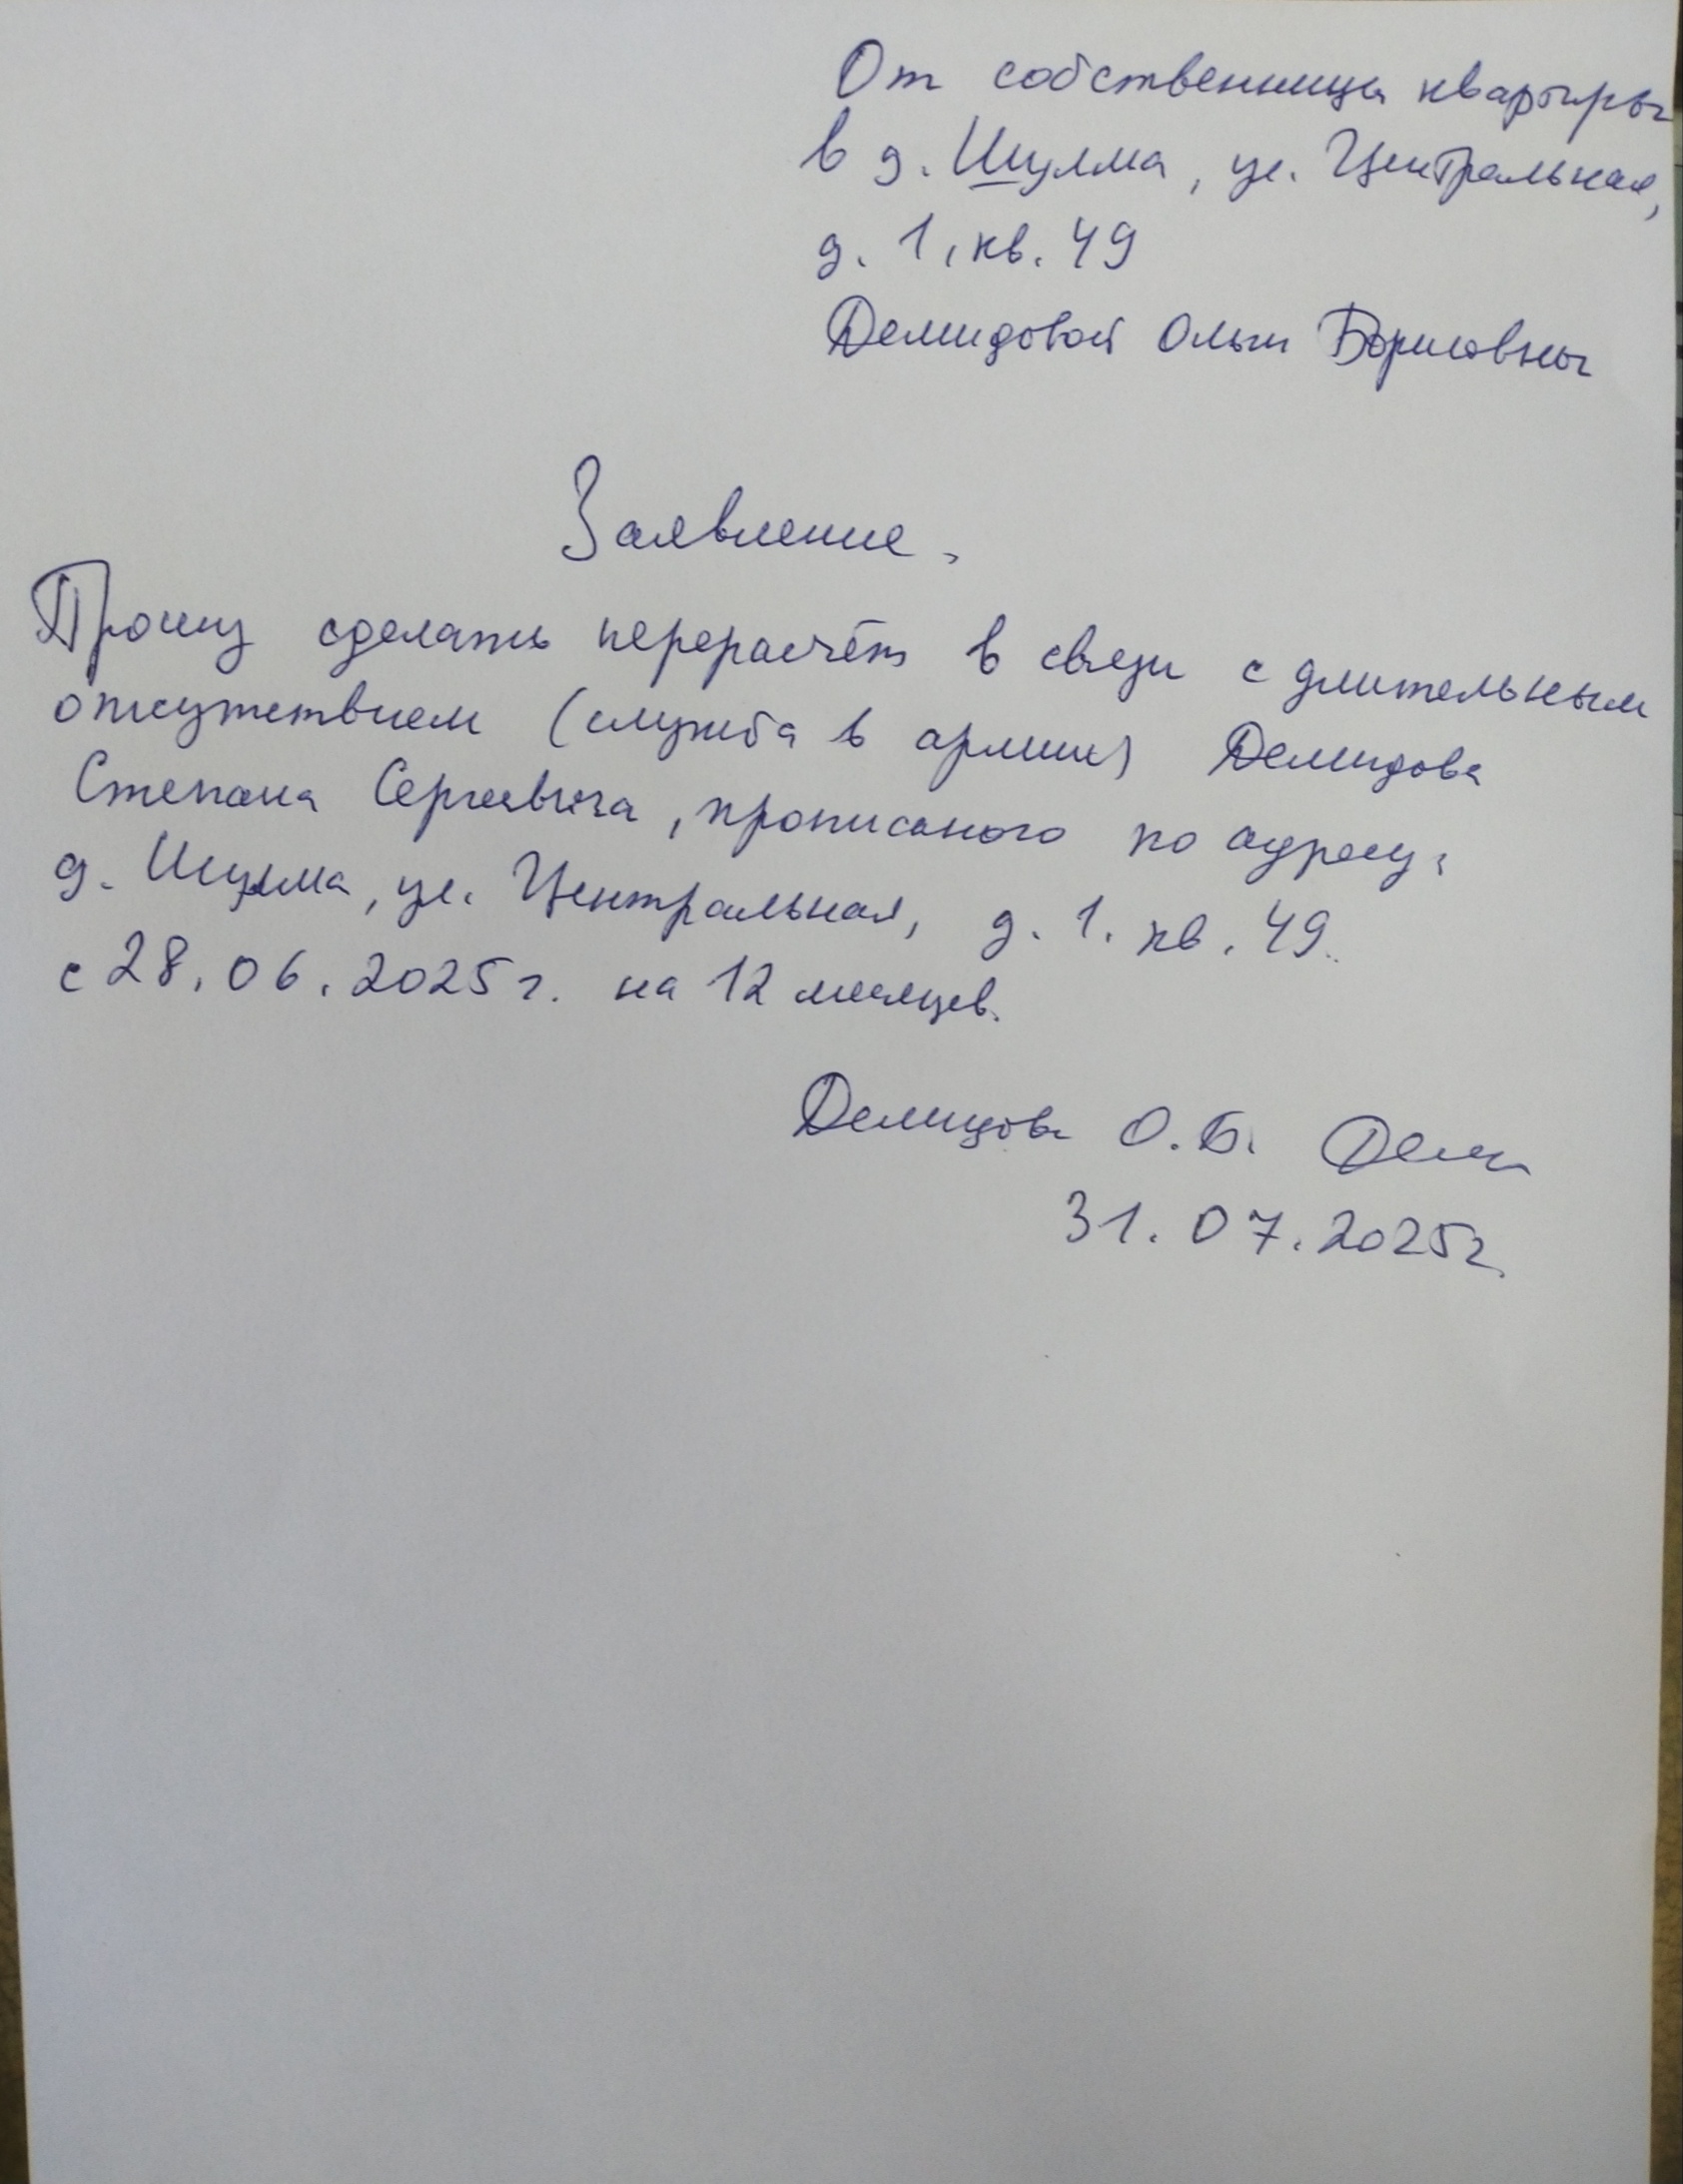 От собственницы квартиры
в д. Шулма, ул. Центральная,
д. 1, кв. 49
Демидовой Ольги Борисовны
Заявление.
Прошу сделать перерасчёт в связи с длительным
отсутствием (служба в армии) Демидова
Степана Сергеевича, прописаного по адресу:
д. Шулма, ул. Центральная, д. 1. кв. 49.
с 28.06.2025 г. на 12 месяцев.
Демидова О.Б. Дем
31.07.2025г.